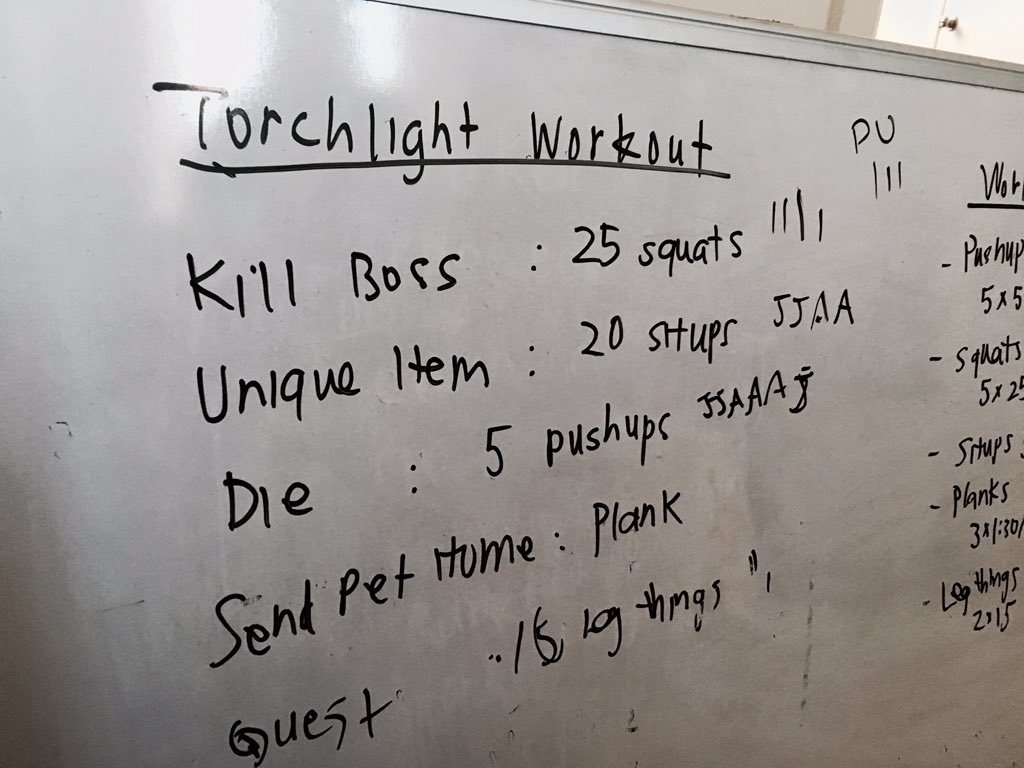 Torchlight Workout
Kill Boss : 25 squats ||||
Unique Item : 20 situps JJAA
Die : 5 pushups JJAAAJ
Send Pet Home : Plank
Quest : 15 Leg things |||
PU
|||
- Pushup
5x5
- Squats
5x25
- Situps
- Planks
3x1:30
- Leg things
2x15